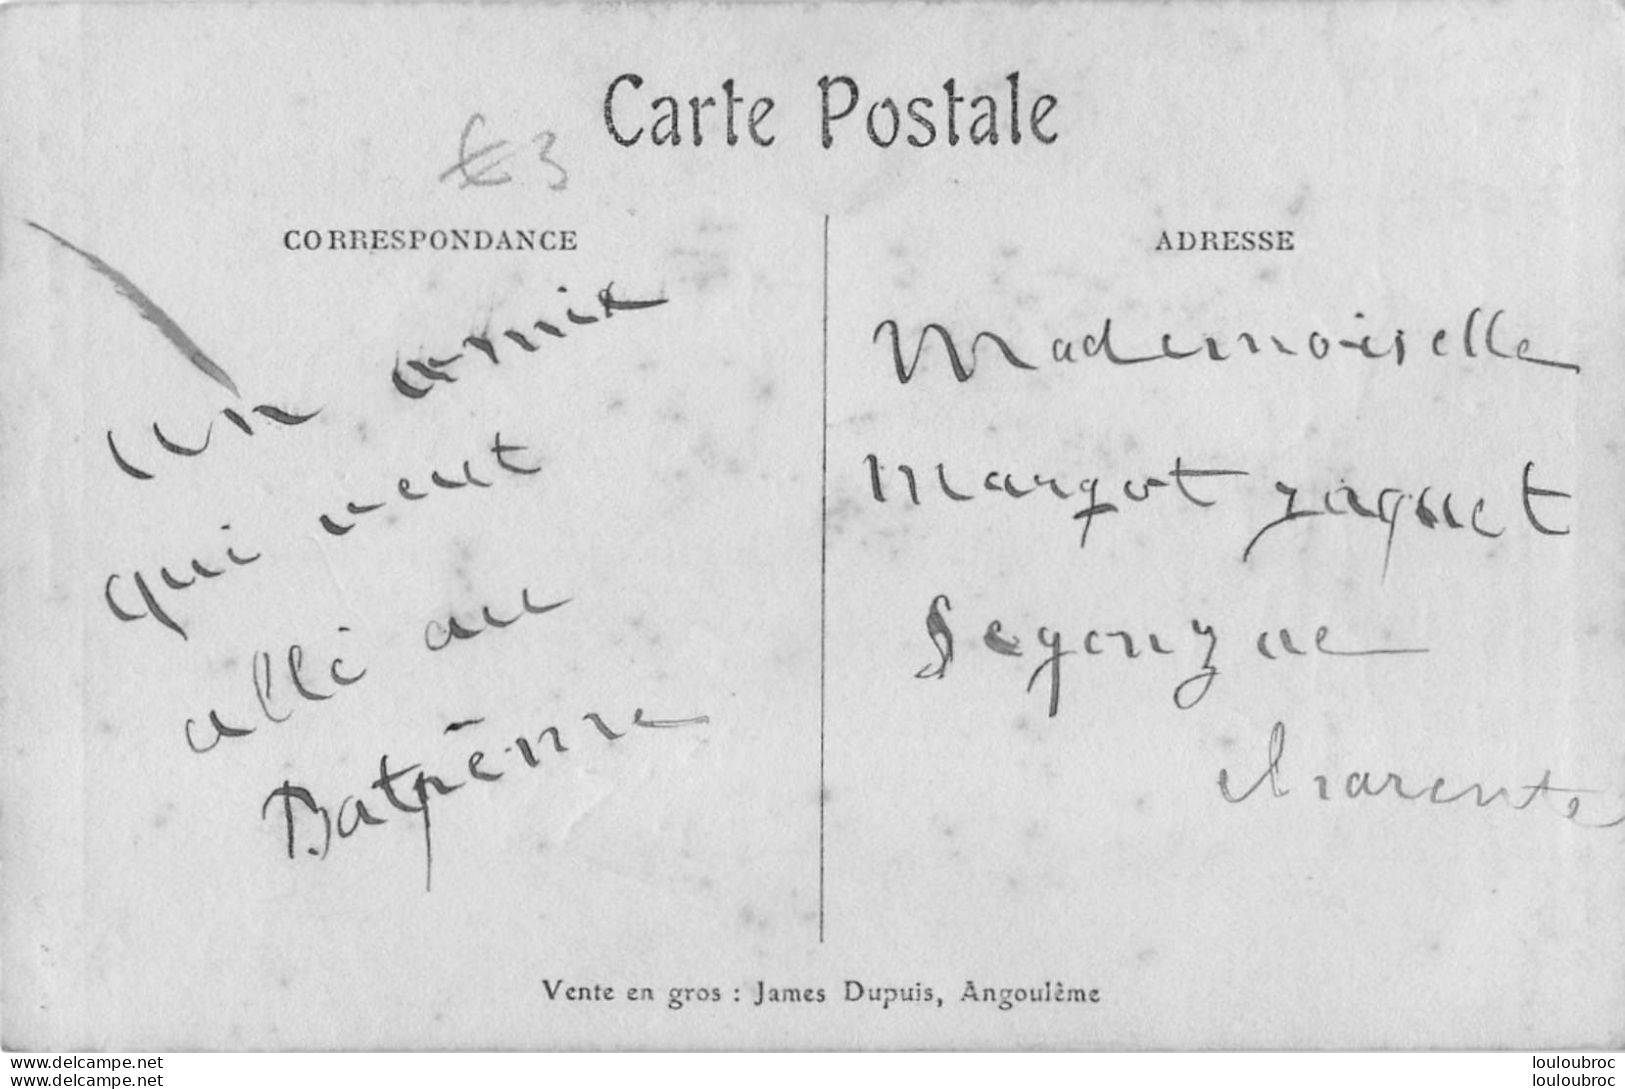 Carte Postale
€ 3
CORRESPONDANCE
un amie
qui veut
allé au
Batpême
ADRESSE
Mademoiselle
Margot Jaquet
Segonzac
Charente
Vente en gros : James Dupuis, Angoulême
www.delcampe.net
www.delcampe.net
louloubroc
louloubroc